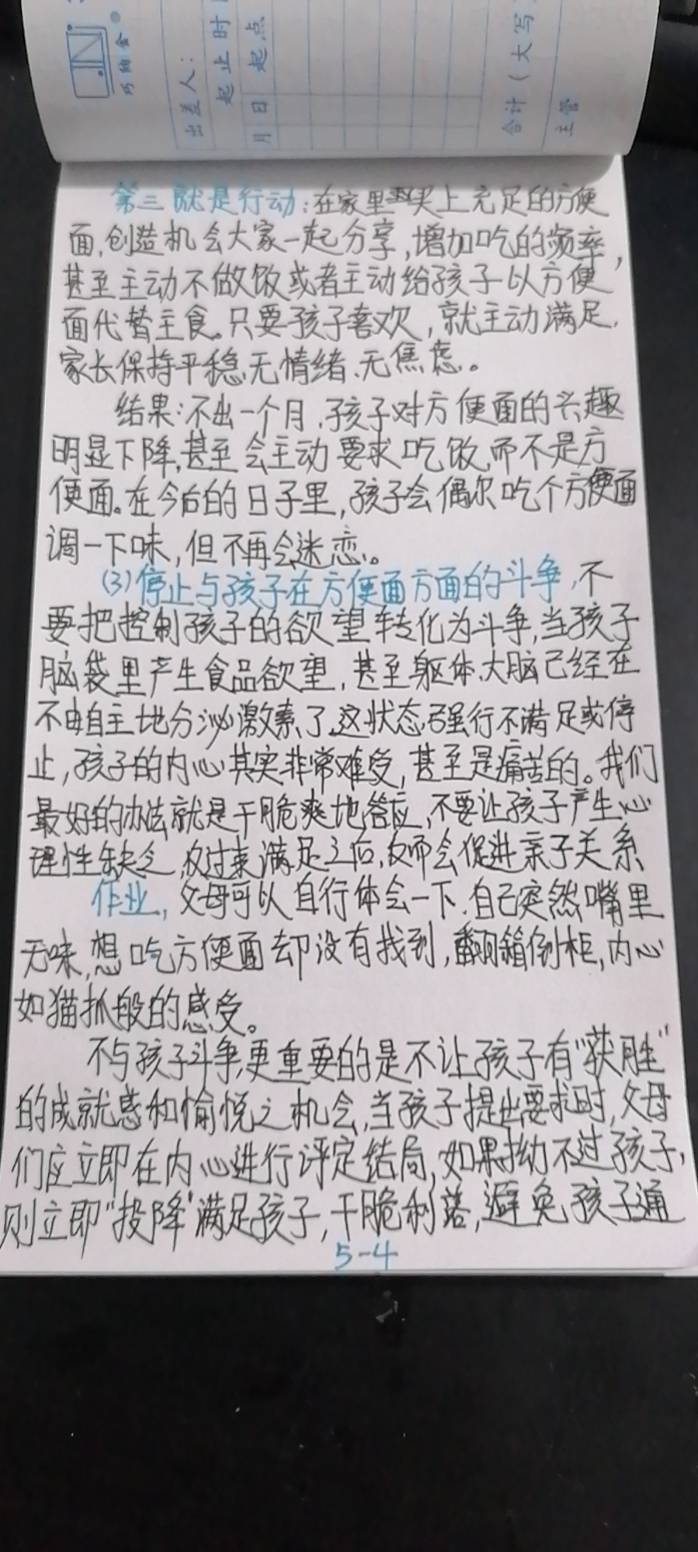 巧纳舍®
出差人：
起止时
月 日 起点
合计（大写
主管
第三就是行动：在家里买上充足的方便
面，创造机会大家一起分享，增加吃的频率，
甚至主动不做饭或者主动给孩子以方便
面代替主食。只要孩子喜欢，就主动满足，
家长保持平稳、无情绪、无焦虑。
结果：不出一个月，孩子对方便面的兴趣
明显下降，甚至会主动要求吃饭，而不是方
便面。在今后的日子里，孩子会偶尔吃个方便面
调一下味，但不再会迷恋。
(3)停止与孩子在方便面方面的斗争，不
要把控制孩子的欲望转化为斗争，当孩子
脑袋里产生食品欲望，甚至躯体、大脑已经在
不由自主地分泌激素了，这状态强行不满足或停
止，孩子的内心其实非常难受，甚至是痛苦的。我们
最好的办法就是干脆爽地答应，不要让孩子产生心
理性缺乏，反过来满足之后，反而会促进亲子关系
作业，父母可以自行体会一下，自己突然嘴里
无味，想吃方便面却没有找到，翻箱倒柜，内心
如猫抓般的感受。
不与孩子斗争，更重要的是不让孩子有“获胜”
的成就感和愉悦之机会，当孩子提出要求时，父母
们应立即在内心进行评定结局，如果拗不过孩子，
则立即“投降”满足孩子，干脆利落，避免孩子通
5-4